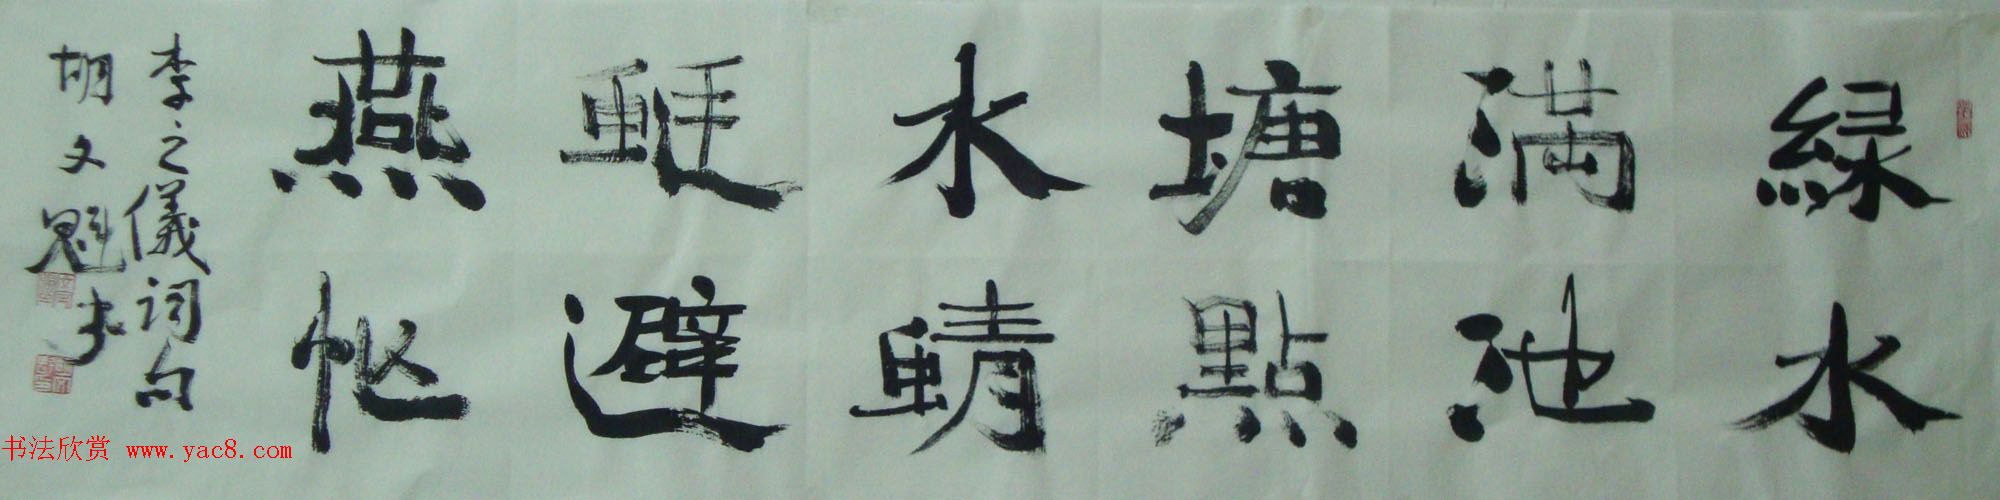 緑水
滿池
塘點
水蜻
蜓避
燕忙
李之儀詞句
胡文魁书
书法欣赏 www.yac8.com